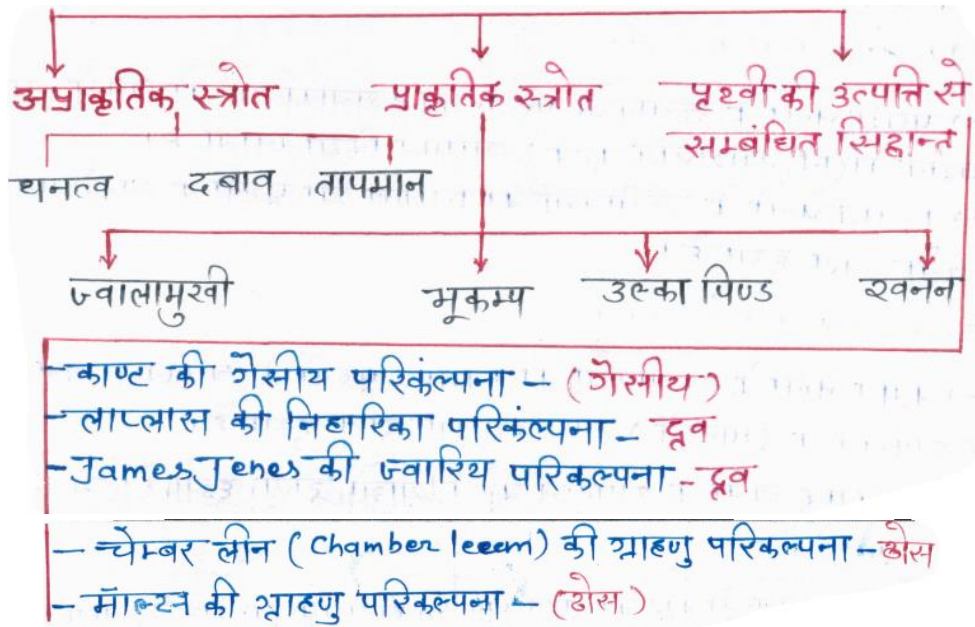 अप्राकृतिक स्त्रोत प्राकृतिक स्त्रोत पृथ्वी की उत्पत्ति से
सम्बंधित सिद्धान्त
घनत्व दबाव तापमान
ज्वालामुखी भूकम्प उल्का पिण्ड खनन
- काण्ट की गैसीय परिकंल्पना - (गैसीय)
- लाप्लास की निहारिका परिकंल्पना - द्रव
- James Jenes की ज्वारिय परिकल्पना - द्रव
- चेम्बर लीन (Chamber leeem) की ग्राहणु परिकल्पना - ठोस
- मॉल्टन की ग्राहणु परिकल्पना - (ठोस)